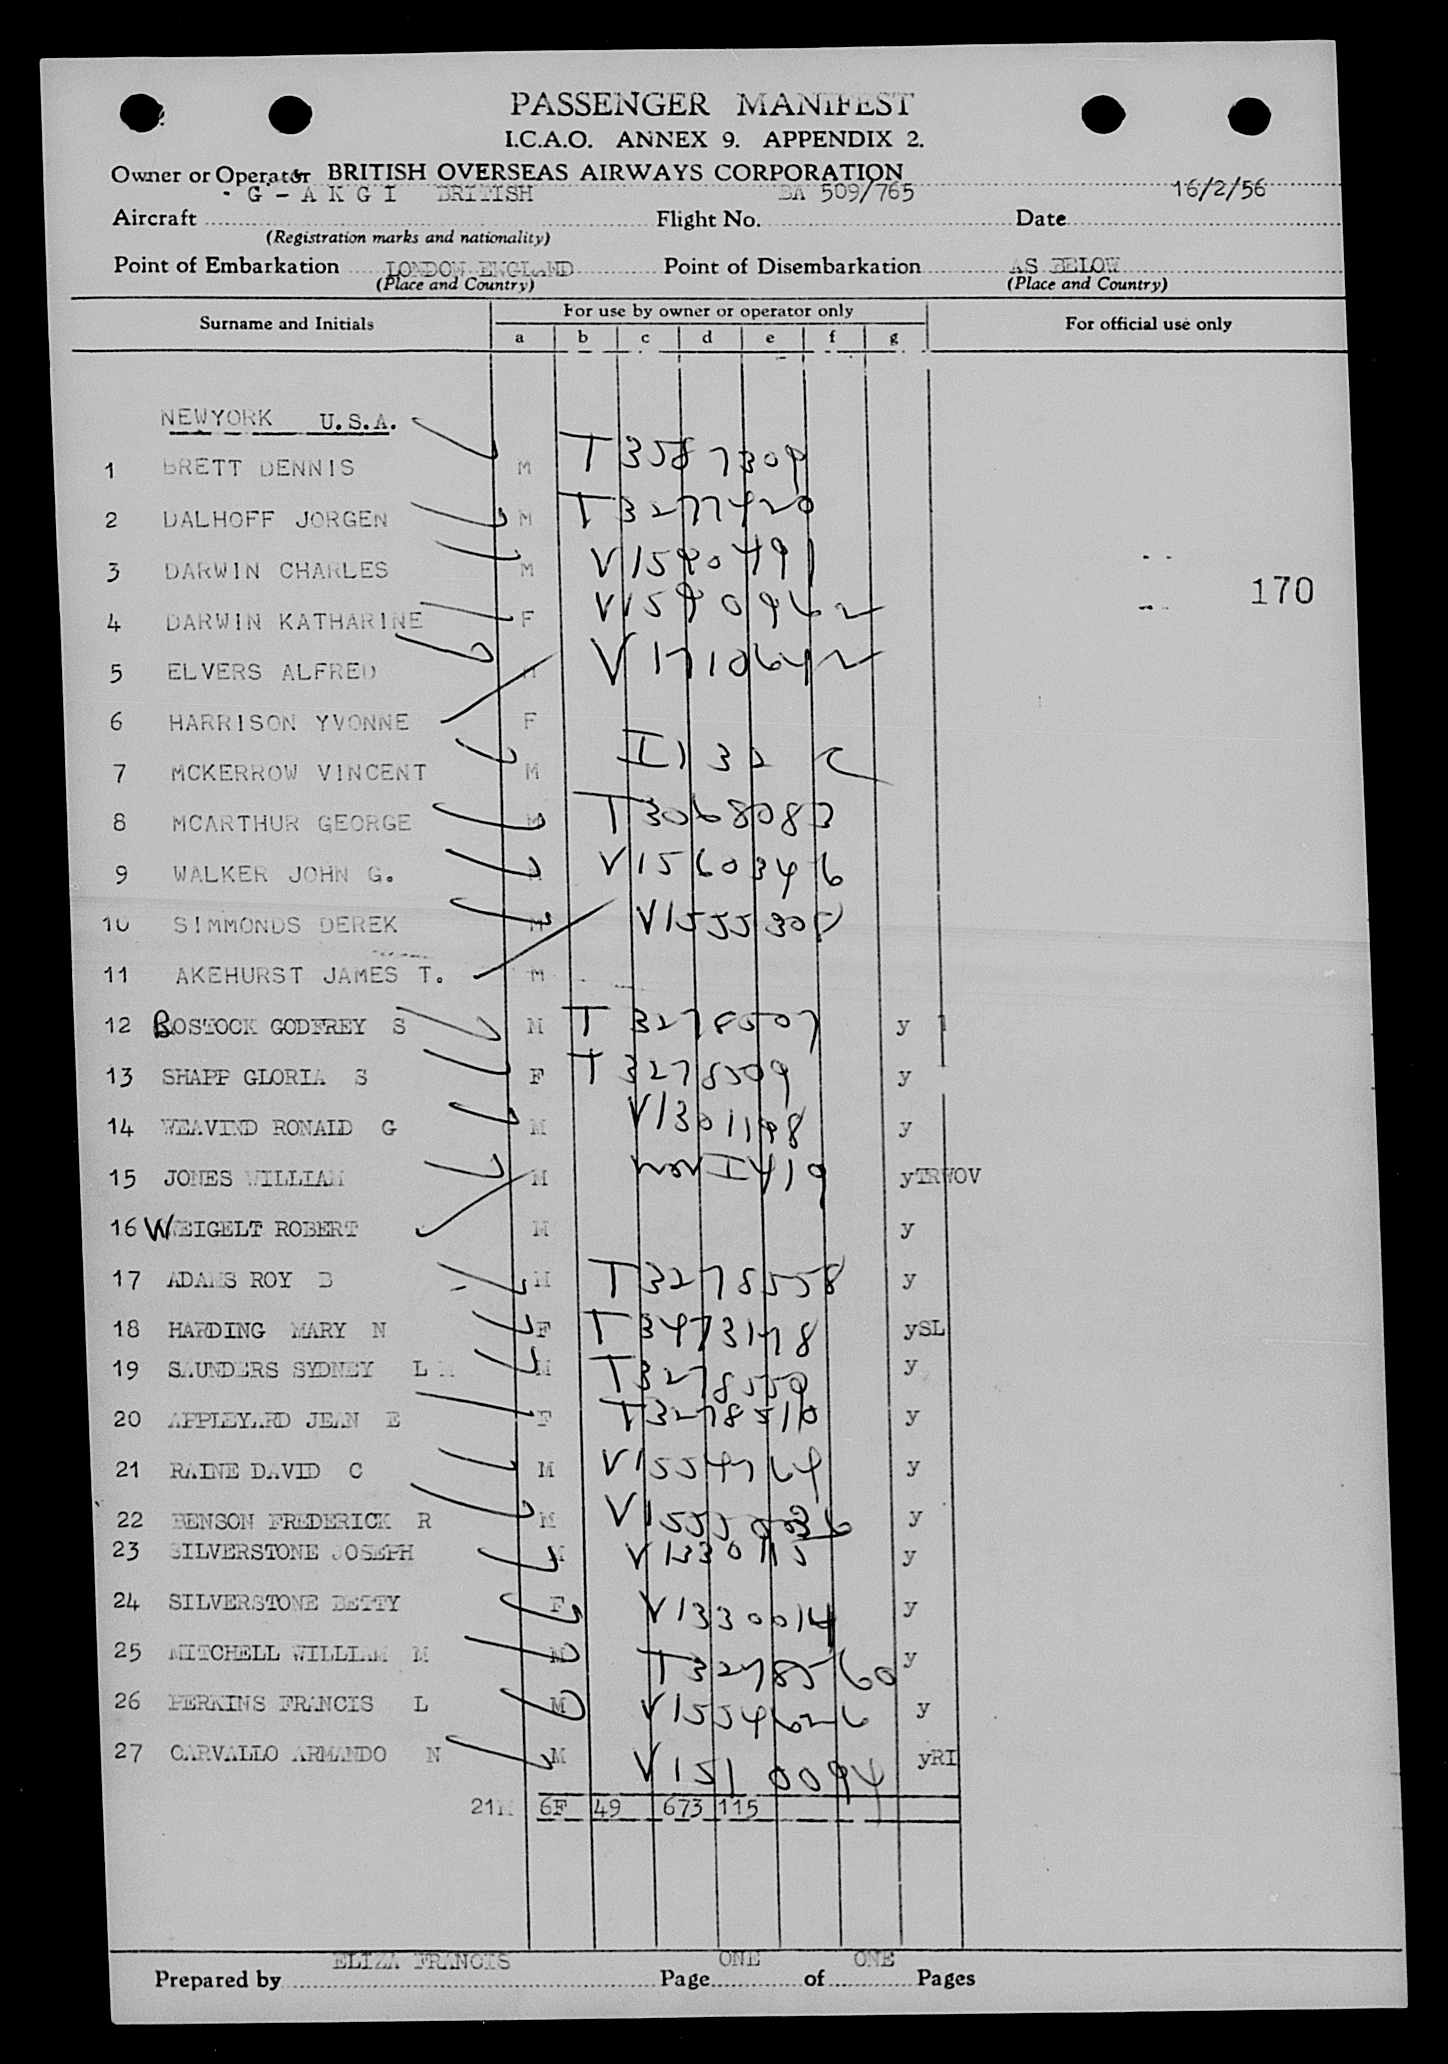 PASSENGER MANIFEST
I.C.A.O. ANNEX 9. APPENDIX 2.
Owner or Operator BRITISH OVERSEAS AIRWAYS CORPORATION
G - A K G I BRITISH BA 509/765 16/2/56
Aircraft Flight No. Date
(Registration marks and nationality)
Point of Embarkation LONDON ENGLAND Point of Disembarkation AS BELOW
(Place and Country) (Place and Country)
Surname and Initials For use by owner or operator only For official use only
a b c d e f g
NEWYORK U.S.A.
1 BRETT DENNIS M T 3587309
2 DALHOFF JORGEN M T 3277420
3 DARWIN CHARLES M V 1590491
4 DARWIN KATHARINE F V 1590962
170
5 ELVERS ALFRED M V 1710642
6 HARRISON YVONNE F
7 MCKERROW VINCENT M I 132
8 MCARTHUR GEORGE M T 3068083
9 WALKER JOHN G. M V 1560346
10 SIMMONDS DEREK M V 1555308
11 AKEHURST JAMES T. M
12 BOSTOCK GODFREY S M T 3278507 y
13 SHAPP GLORIA S F T 3278509 y
14 WEAVIND RONALD G M V 1301198 y
15 JONES WILLIAM M I 419 yTRWOV
16 WEIGELT ROBERT M y
17 ADAMS ROY B M T 3278558 y
18 HARDING MARY N F T 3473178 ySL
19 SAUNDERS SYDNEY L M M T 3278559 y
20 APPLEYARD JEAN E F T 3278510 y
21 RAINE DAVID C M V 1554764 y
22 BENSON FREDERICK R M V 1555036 y
23 SILVERSTONE JOSEPH M V 1330115 y
24 SILVERSTONE BETTY F V 1330014 y
25 MITCHELL WILLIAM M M T 3278560 y
26 PERKINS FRANCIS L M V 1554626 y
27 CARVALLO ARMANDO N M V 1510094 yRI
21M 6F 49 673 115
ELIZA FRANCIS ONE ONE
Prepared by Page of Pages